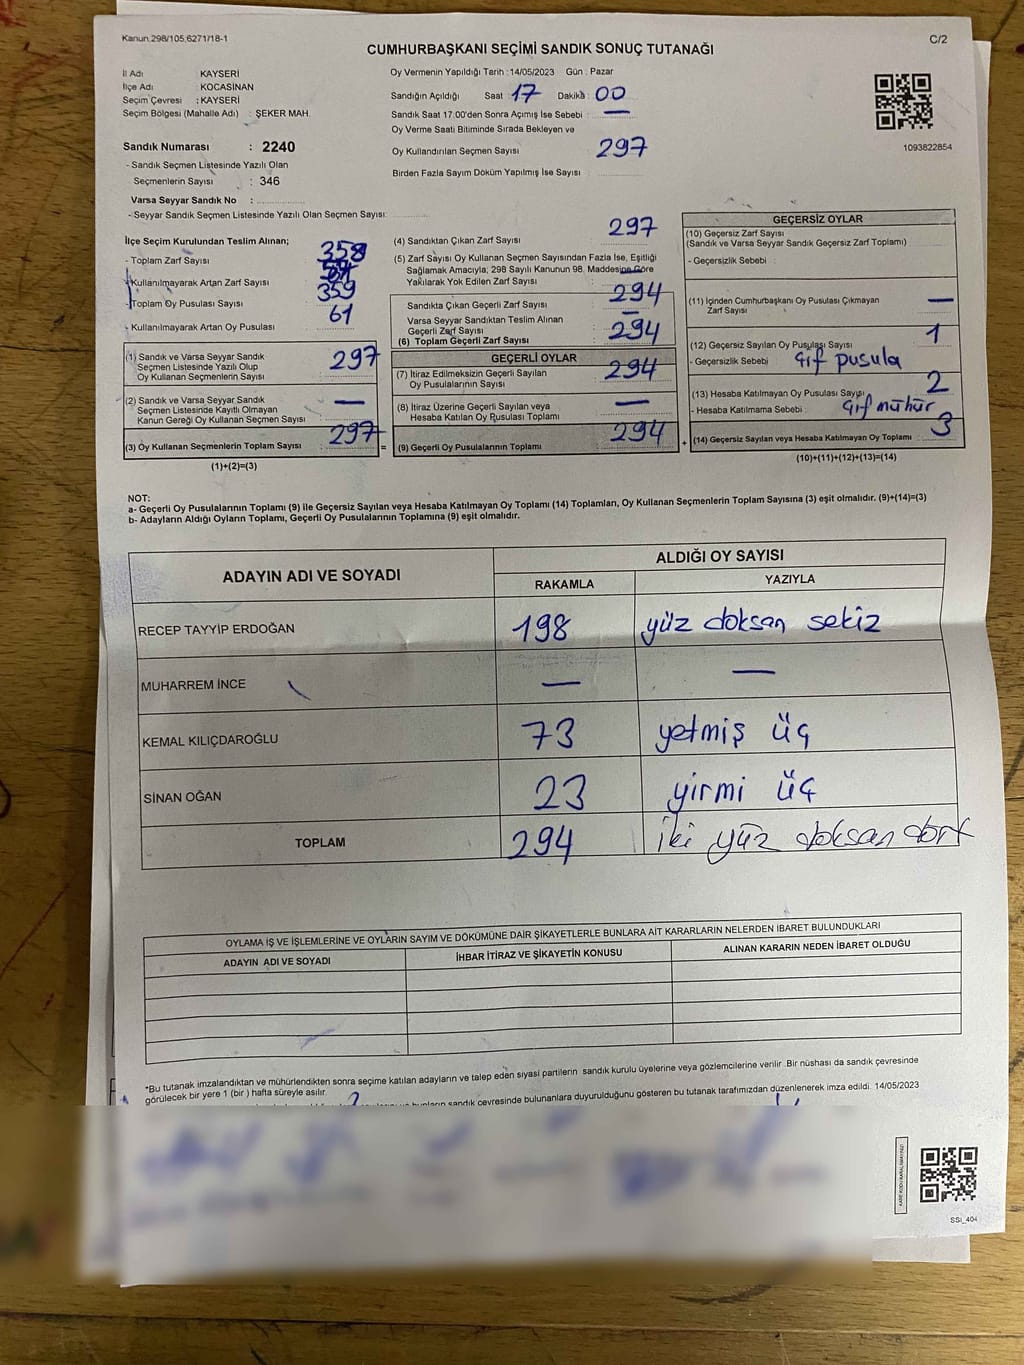 Kanun 298/105,6271/18-1
C/2
CUMHURBAŞKANI SEÇİMİ SANDIK SONUÇ TUTANAĞI
İl Adı : KAYSERİ
İlçe Adı : KOCASİNAN
Seçim Çevresi : KAYSERİ
Seçim Bölgesi (Mahalle Adı) : ŞEKER MAH.
Sandık Numarası : 2240
- Sandık Seçmen Listesinde Yazılı Olan
Seçmenlerin Sayısı : 346
Varsa Seyyar Sandık No :
- Seyyar Sandık Seçmen Listesinde Yazılı Olan Seçmen Sayısı:
Oy Vermenin Yapıldığı Tarih :14/05/2023 Gün : Pazar
Sandığın Açıldığı Saat : 17 Dakika : 00
Sandık Saat 17:00'den Sonra Açımış İse Sebebi : —
Oy Verme Saati Bitiminde Sırada Bekleyen ve
Oy Kullandırılan Seçmen Sayısı : 297
Birden Fazla Sayım Döküm Yapılmış İse Sayısı :
1093822854
İlçe Seçim Kurulundan Teslim Alınan;
- Toplam Zarf Sayısı : 358
- Kullanılmayarak Artan Zarf Sayısı :
- Toplam Oy Pusulası Sayısı : 359
- Kullanılmayarak Artan Oy Pusulası : 61
(1) Sandık ve Varsa Seyyar Sandık
Seçmen Listesinde Yazılı Olup
Oy Kullanan Seçmenlerin Sayısı : 297
(2) Sandık ve Varsa Seyyar Sandık
Seçmen Listesinde Kayıtlı Olmayan
Kanun Gereği Oy Kullanan Seçmen Sayısı : —
(3) Oy Kullanan Seçmenlerin Toplam Sayısı : 297 =
(1)+(2)=(3)
(4) Sandıktan Çıkan Zarf Sayısı : 297
(5) Zarf Sayısı Oy Kullanan Seçmen Sayısından Fazla İse, Eşitliği
Sağlamak Amacıyla; 298 Sayılı Kanunun 98. Maddesine Göre
Yakılarak Yok Edilen Zarf Sayısı : —
Sandıkta Çıkan Geçerli Zarf Sayısı : 294
Varsa Seyyar Sandıktan Teslim Alınan
Geçerli Zarf Sayısı : —
(6) Toplam Geçerli Zarf Sayısı : 294
GEÇERLİ OYLAR
(7) İtiraz Edilmeksizin Geçerli Sayılan
Oy Pusulalarının Sayısı : 294
(8) İtiraz Üzerine Geçerli Sayılan veya
Hesaba Katılan Oy Pusulası Toplamı : —
(9) Geçerli Oy Pusulalarının Toplamı : 294 +
GEÇERSİZ OYLAR
(10) Geçersiz Zarf Sayısı
(Sandık ve Varsa Seyyar Sandık Geçersiz Zarf Toplamı)
- Geçersizlik Sebebi :
(11) İçinden Cumhurbaşkanı Oy Pusulası Çıkmayan
Zarf Sayısı : —
(12) Geçersiz Sayılan Oy Pusulası Sayısı : 1
- Geçersizlik Sebebi : Çift pusula
(13) Hesaba Katılmayan Oy Pusulası Sayısı : 2
- Hesaba Katılmama Sebebi : Çift mühür
(14) Geçersiz Sayılan veya Hesaba Katılmayan Oy Toplamı : 3
(10)+(11)+(12)+(13)=(14)
NOT:
a- Geçerli Oy Pusulalarının Toplamı (9) ile Geçersiz Sayılan veya Hesaba Katılmayan Oy Toplamı (14) Toplamları, Oy Kullanan Seçmenlerin Toplam Sayısına (3) eşit olmalıdır. (9)+(14)=(3)
b- Adayların Aldığı Oyların Toplamı, Geçerli Oy Pusulalarının Toplamına (9) eşit olmalıdır.
ADAYIN ADI VE SOYADI
ALDIĞI OY SAYISI
RAKAMLA YAZIYLA
RECEP TAYYİP ERDOĞAN 198 yüz doksan sekiz
MUHARREM İNCE — —
KEMAL KILIÇDAROĞLU 73 yetmiş üç
SİNAN OĞAN 23 yirmi üç
TOPLAM 294 iki yüz doksan dört
OYLAMA İŞ VE İŞLEMLERİNE VE OYLARIN SAYIM VE DÖKÜMÜNE DAİR ŞİKAYETLERLE BUNLARA AİT KARARLARIN NELERDEN İBARET BULUNDUKLARI
ADAYIN ADI VE SOYADI İHBAR İTİRAZ VE ŞİKAYETİN KONUSU ALINAN KARARIN NEDEN İBARET OLDUĞU
*Bu tutanak imzalandıktan ve mühürlendikten sonra seçime katılan adayların ve talep eden siyasi partilerin sandık kurulu üyelerine veya gözlemcilerine verilir. Bir nüshası da sandık çevresinde
görülecek bir yere 1 (bir ) hafta süreyle asılır.
sandık çevresinde bulunanlara duyurulduğunu gösteren bu tutanak tarafımızdan düzenlenerek imza edildi. 14/05/2023
SSİ_404